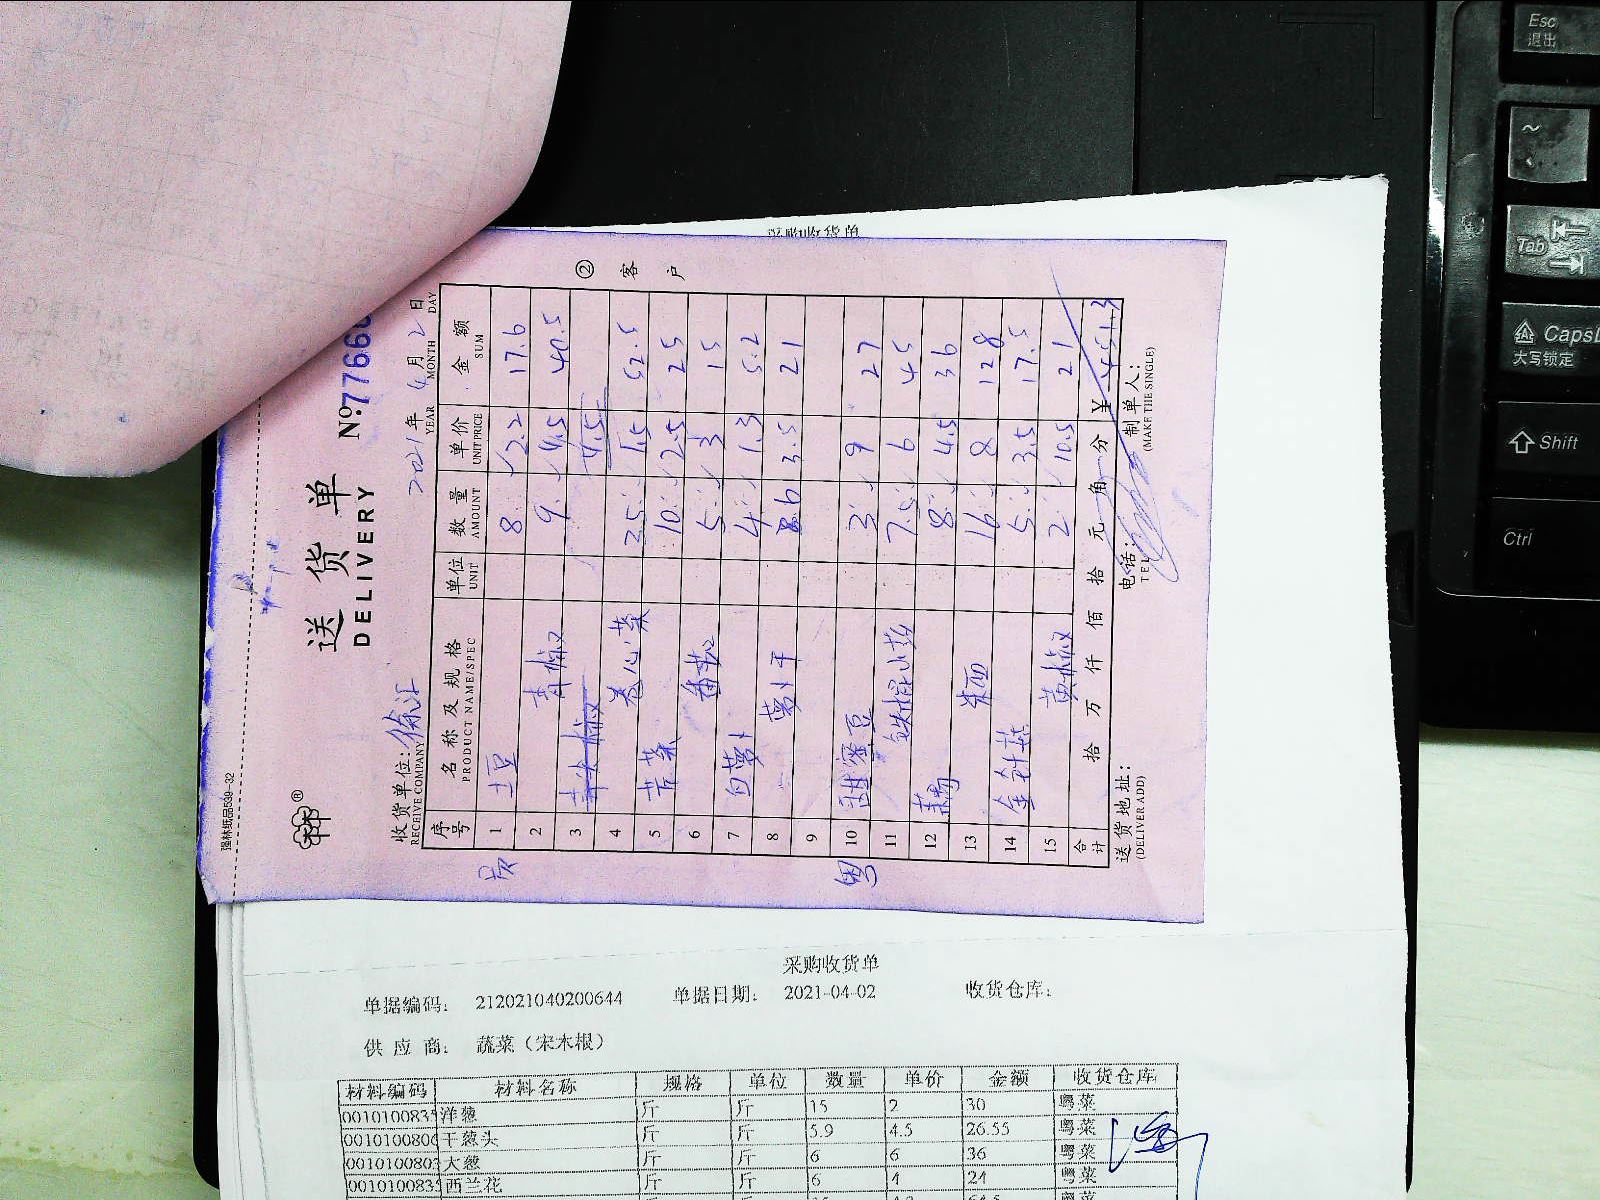 强林纸品539-32
送货单
DELIVERY
№776
收货单位: 徐汇
RECEIVE COMPANY
2021年 4月 2日
YEAR MONTH DAY
② 客户
序号 名称及规格 单位 数量 单价 金额
PRODUCT NAME/SPEC UNIT AMOUNT UNIT PRICE SUM
1 土豆 8 2.2 17.6
2 青椒 9 4.5 40.5
3 4.5
4 卷心菜 25 1.5 52.5
5 苦菜 10 2.5 25
6 番茄 5 3 15
7 白萝卜 4 1.3 5.2
8 萝卜干 6 3.5 21
9
粤
10 甜蜜豆 3 9 27
11 铁棍山药 7.5 6 45
12 8 4.5 36
13 16 8 128
14 金针菇 5 3.5 17.5
15 黄椒 2 10.5 21
合计 拾 万 仟 佰 拾 元 角 分 ¥ 451.3
送货地址: 电话: 制单人:
(DELIVER ADD) TEL (MAKE THE SINGLE)
采购收货单
采购收货单
单据编码: 212021040200644 单据日期: 2021-04-02 收货仓库:
供应商: 蔬菜(宋木根)
材料编码 材料名称 规格 单位 数量 单价 金额 收货仓库
001010083 洋葱 斤 斤 15 2 30 粤菜
001010080 干葱头 斤 斤 5.9 4.5 26.55 粤菜
001010080 大葱 斤 斤 6 6 36 粤菜
001010083 西兰花 斤 斤 6 4 24 粤菜
Esc
退出
~
Tab
CapsL
大写锁定
Shift
Ctrl